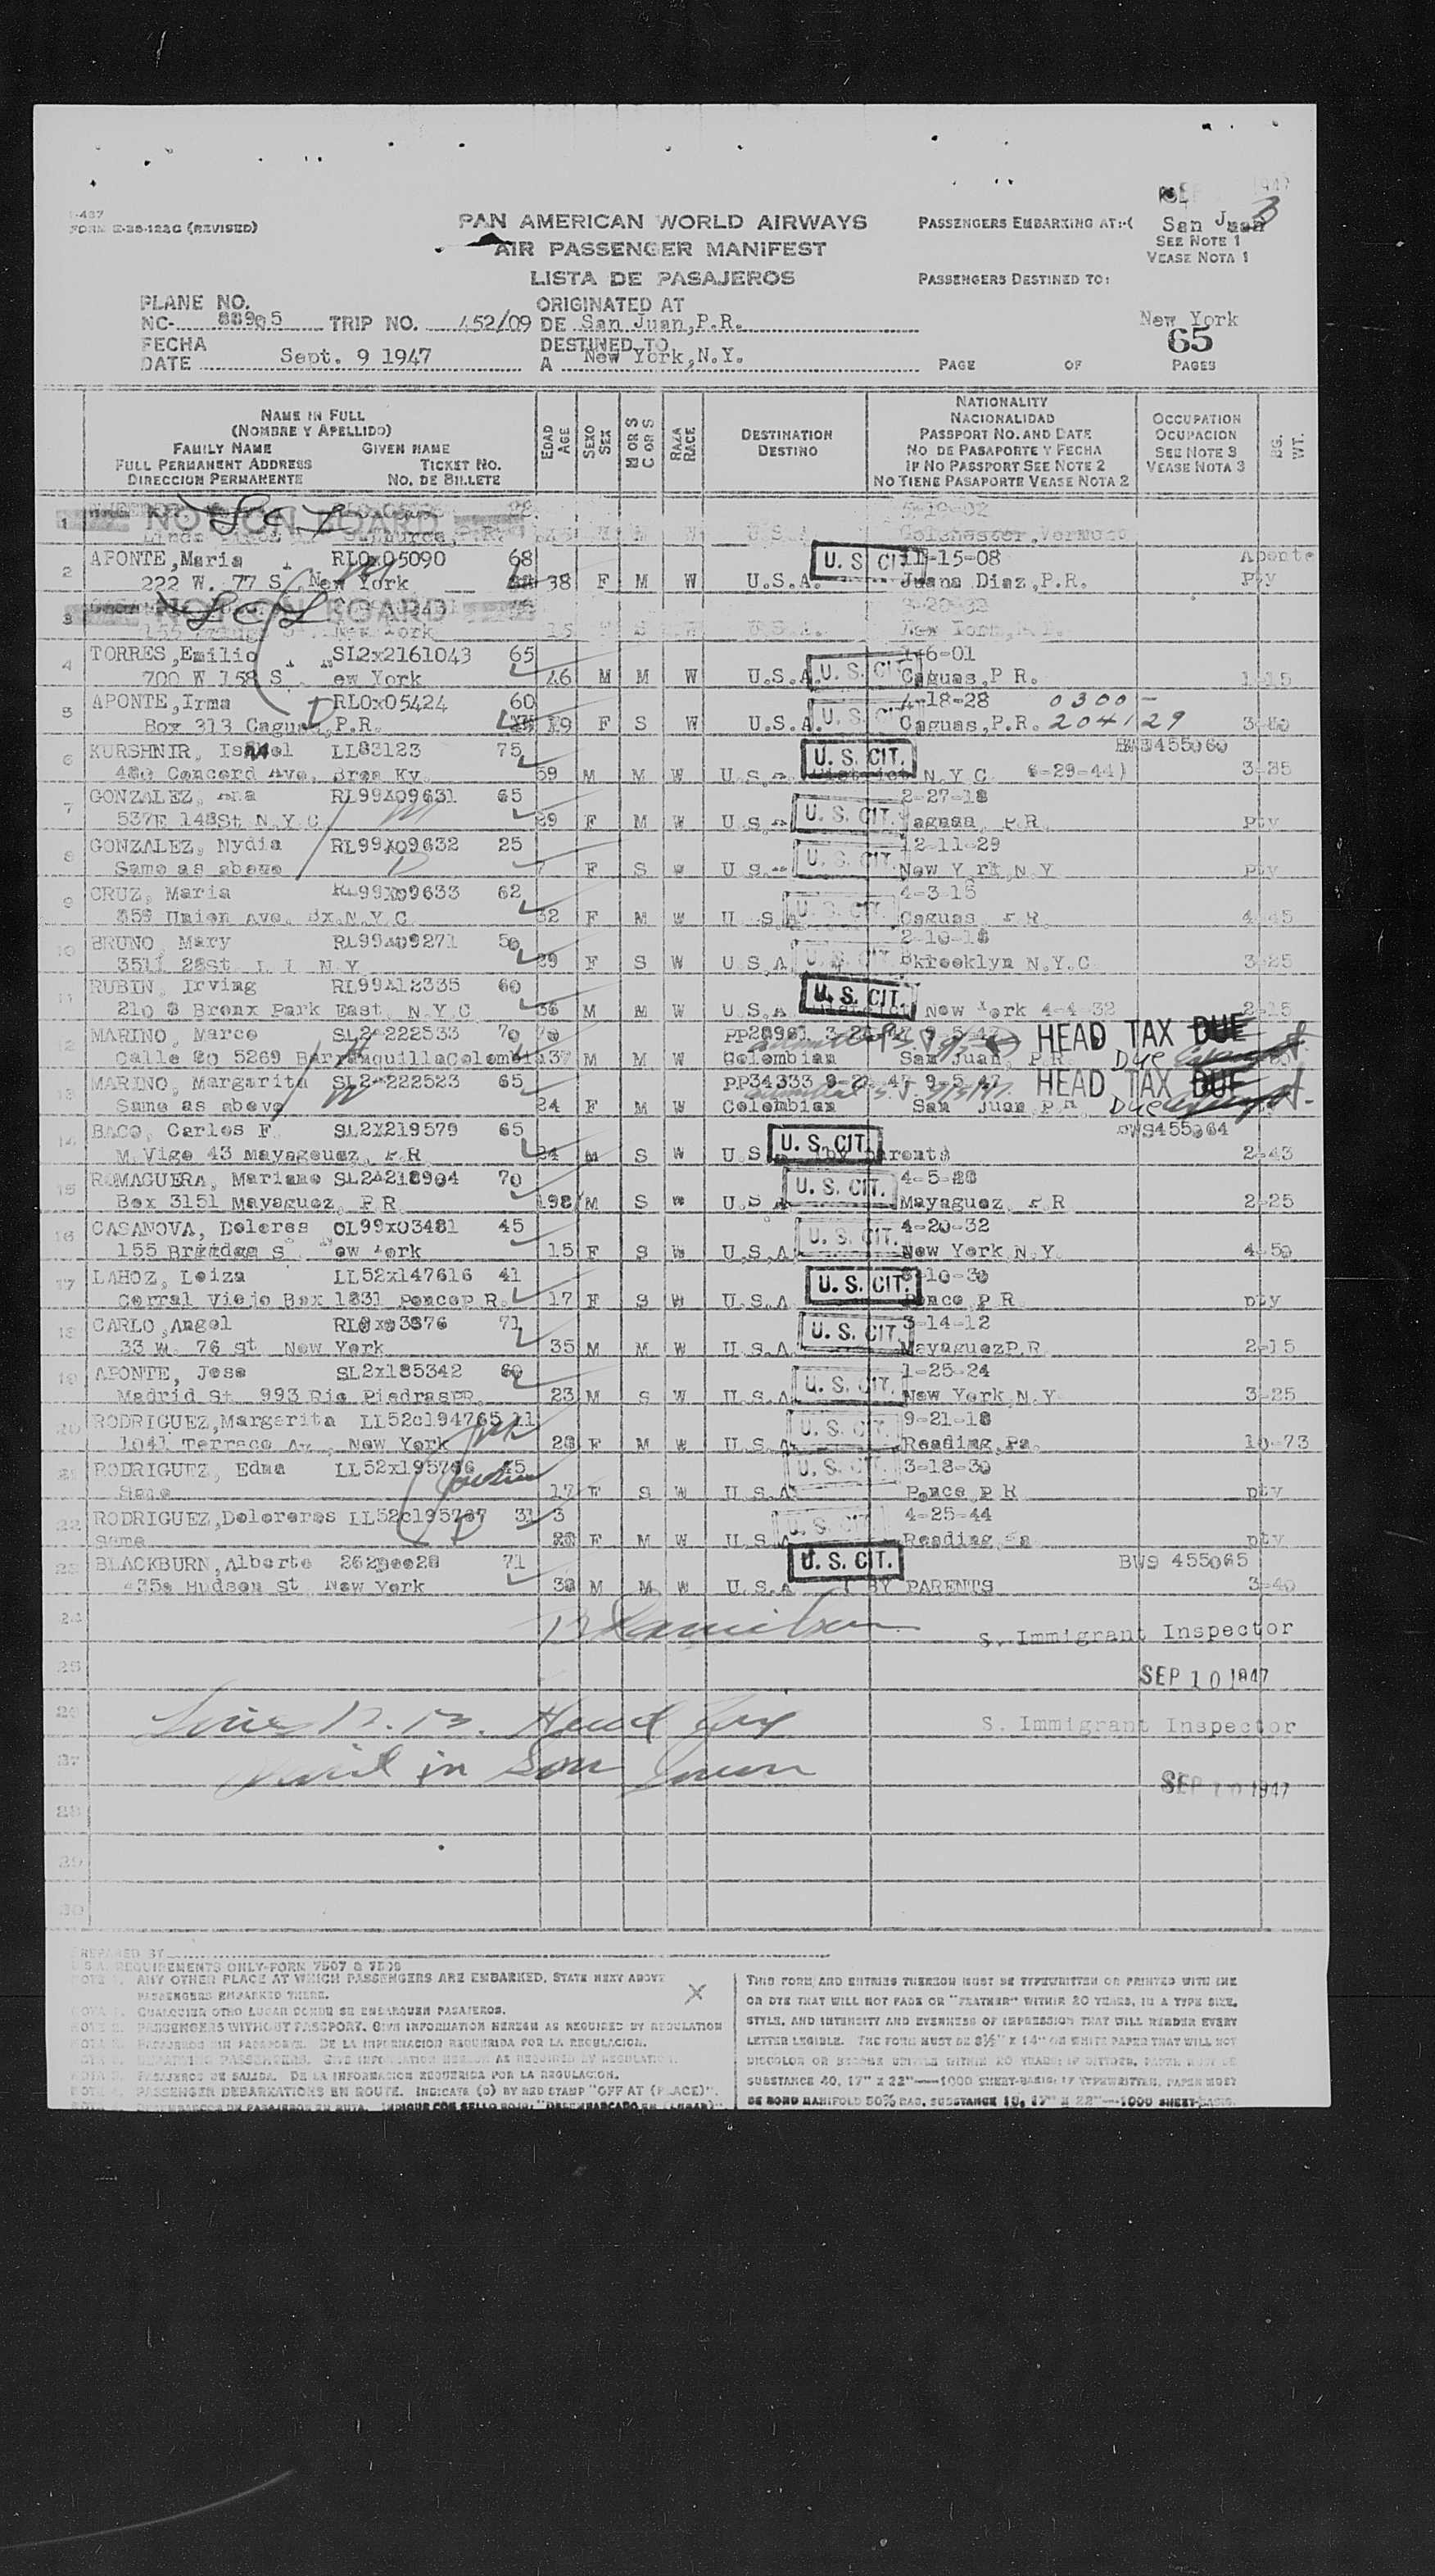 1947
I-437
FORM E-38-122G (REVISED)
PAN AMERICAN WORLD AIRWAYS
AIR PASSENGER MANIFEST
LISTA DE PASAJEROS
PASSENGERS EMBARKING AT:-(
San Juan
3
SEE NOTE 1
VEASE NOTA 1
PASSENGERS DESTINED TO:
New York
65
PLANE NO.
NC- 88905 TRIP NO. 452/09
ORIGINATED AT
DE San Juan,P.R.
FECHA
DATE Sept. 9 1947
DESTINED TO
A New York,N.Y.
PAGE OF PAGES
NAME IN FULL
(NOMBRE Y APELLIDO)
FAMILY NAME GIVEN NAME
FULL PERMANENT ADDRESS TICKET NO.
DIRECCION PERMANENTE NO. DE BILLETE
EDAD AGE
SEXO SEX
M OR S C OR S
RAZA RACE
DESTINATION
DESTINO
NATIONALITY
NACIONALIDAD
PASSPORT NO. AND DATE
NO DE PASAPORTE Y FECHA
IF NO PASSPORT SEE NOTE 2
NO TIENE PASAPORTE VEASE NOTA 2
OCCUPATION
OCUPACION
SEE NOTE 3
VEASE NOTA 3
BG. WT.
1 NOT ON BOARD
M W U.S.A. Colchester,Vermont
2 APONTE,Maria RLOx05090 68 U.S. CIT 11-15-08 Aponte
222 W. 77 S New York 38 F M W U.S.A. Juana Diaz,P.R. Pty
3 NOT ON BOARD
155 New York 15 S W U.S.A. New York
4 TORRES,Emilio SL2x2161043 65 U.S. CIT 1-6-01
700 W 158 S ew York 46 M M W U.S.A. Caguas,P R. 1-15
5 APONTE,Irma RLOx05424 60 U.S. CIT 4-18-28 0300-
Box 313 Caguas,P.R. 19 F S W U.S.A. Caguas,P.R. 204129 3-80
6 KURSHNIR, LL83123 75 U.S. CIT. BWS455060
480 Concord Ave. 59 M M W U S N Y C 6-29-44) 3-35
7 GONZALEZ, RL99x09631 65 U.S. CIT. 2-27-18
537E 148St N.Y.C 29 F M W U.S. P.R. Pty
8 GONZALEZ, Nydia RL99x09632 25 U.S. CIT. 12-11-29
Same as above 7 F S W U S New York N Y Pty
9 CRUZ, Maria RL99x09633 62 U.S. CIT. 4-3-15
859 Union Ave. Bx.N.Y.C 32 F M W U S A Caguas P.R. 4-45
10 BRUNO, Mary RL99x09271 50 U.S. CIT 2-10-18
3511 28St L I N.Y. 29 F S W U.S.A N.Y.C 3-25
11 RUBIN, Irving RL99x12335 60 U.S. CIT.
210 8 Bronx Park East N.Y.C 36 M M W U.S.A New York 4-4-32 2-15
12 MARINO, Marco SL2x222533 70 PP28961 9-5-47 HEAD TAX DUE
Calle 80 5269 Barranquilla Colombia 37 M M W Colombian San Juan, P.R. Due
13 MARINO, Margarita SL2x222523 65 PP34333 9-2-47 9-5-47 HEAD TAX DUE
Same as above 24 F M W Colombian San Juan P.R. Due
14 BACO, Carlos F. SL2x219579 65 U.S. CIT. BWS455064
M.Vigo 43 Mayaguez, P.R 24 M S W U S (by parents) 2-43
15 ROMAGUERA, Mariano SL2x218904 70 U.S. CIT. 4-5-28
Box 3151 Mayaguez, P R 19 M S W U S A Mayaguez P R 2-25
16 CASANOVA, Dolores OL99x03481 45 U.S. CIT. 4-20-32
155 Bridge S ew York 15 F S W U.S.A. New York N.Y. 4-50
17 LAHOZ, Loiza LL52x147616 41 U.S. CIT. -10-30
Corral Viejo Box 1831 Ponce P R. 17 F S W U.S.A Ponce P R pty
18 CARLO,Angel 71 U.S. CIT. 3-14-12
33 W. 76 St New York 35 M M W U.S.A Mayaguez P.R 2-15
19 APONTE, Jose SL2x185342 60 U.S. CIT. 1-25-24
Madrid St. 993 Rio Piedras PR. 23 M S W U.S.A New York,N.Y. 3-25
20 RODRIGUEZ,Margarita LL52c194765 11 U.S. CIT. 9-21-18
1041 Terrace Av., New York 28 F M W U.S.A Reading,Pa. 10-73
21 RODRIGUEZ, Edna LL52x195766 45 U.S. CIT. 3-18-30
Same 17 F S W U.S.A Ponce P R pty
22 RODRIGUEZ,Doloreres LL52c195767 31 3 U.S. CIT 4-25-44
Same F M W U.S.A Reading Pa pty
23 BLACKBURN,Alberto 71 U.S. CIT. BWS 455065
435a Hudson St. New York 38 M M W U.S.A ( BY PARENTS 3-40
24
S. Immigrant Inspector
25
SEP 10 1947
26 Lines 12.13. Head Tax
S. Immigrant Inspector
27 Paid in San Juan
SEP 10 1947
28
29
30
PREPARED BY
U.S.A. REQUIREMENTS ONLY-FORM 7507 & 7509
NOTE 1. ANY OTHER PLACE AT WHICH PASSENGERS ARE EMBARKED, STATE NEXT ABOVE
PASSENGERS EMBARKED THERE.
NOTA 1. CUALQUIER OTRO LUGAR DONDE SE EMBARQUEN PASAJEROS.
NOTE 2. PASSENGERS WITHOUT PASSPORT. GIVE INFORMATION HEREON AS REQUIRED BY REGULATION
NOTA 2. PASAJEROS SIN PASAPORTE. DE LA INFORMACION REQUERIDA POR LA REGULACION.
NOTE 3. DEPARTING PASSENGERS. GIVE INFORMATION HEREON AS REQUIRED BY REGULATION.
NOTA 3. PASAJEROS DE SALIDA. DE LA INFORMACION REQUERIDA POR LA REGULACION.
NOTE 4. PASSENGER DEBARKATIONS EN ROUTE. INDICATE (D) BY RED STAMP "OFF AT (PLACE)".
DESEMBARCOS DE PASAJEROS EN RUTA. INDIQUE CON SELLO ROJO: "DESEMBARCADO EN (LUGAR)"
X
THIS FORM AND ENTRIES THEREON MUST BE TYPEWRITTEN OR PRINTED WITH INK
OR DYE THAT WILL NOT FADE OR "FEATHER" WITHIN 20 YEARS, IN A TYPE SIZE,
STYLE, AND INTENSITY AND EVENNESS OF IMPRESSION THAT WILL RENDER EVERY
LETTER LEGIBLE. THE FORM MUST BE 8½" X 14" ON WHITE PAPER THAT WILL NOT
DISCOLOR OR BECOME BRITTLE WITHIN 20 YEARS; IF DITTOED, PAPER MUST BE
SUBSTANCE 40, 17" X 22"—1000 SHEET-BASIS; IF TYPEWRITTEN, PAPER MUST
BE BOND MANIFOLD 50% RAG, SUBSTANCE 18, 17" X 22"—1000 SHEET-BASIS.